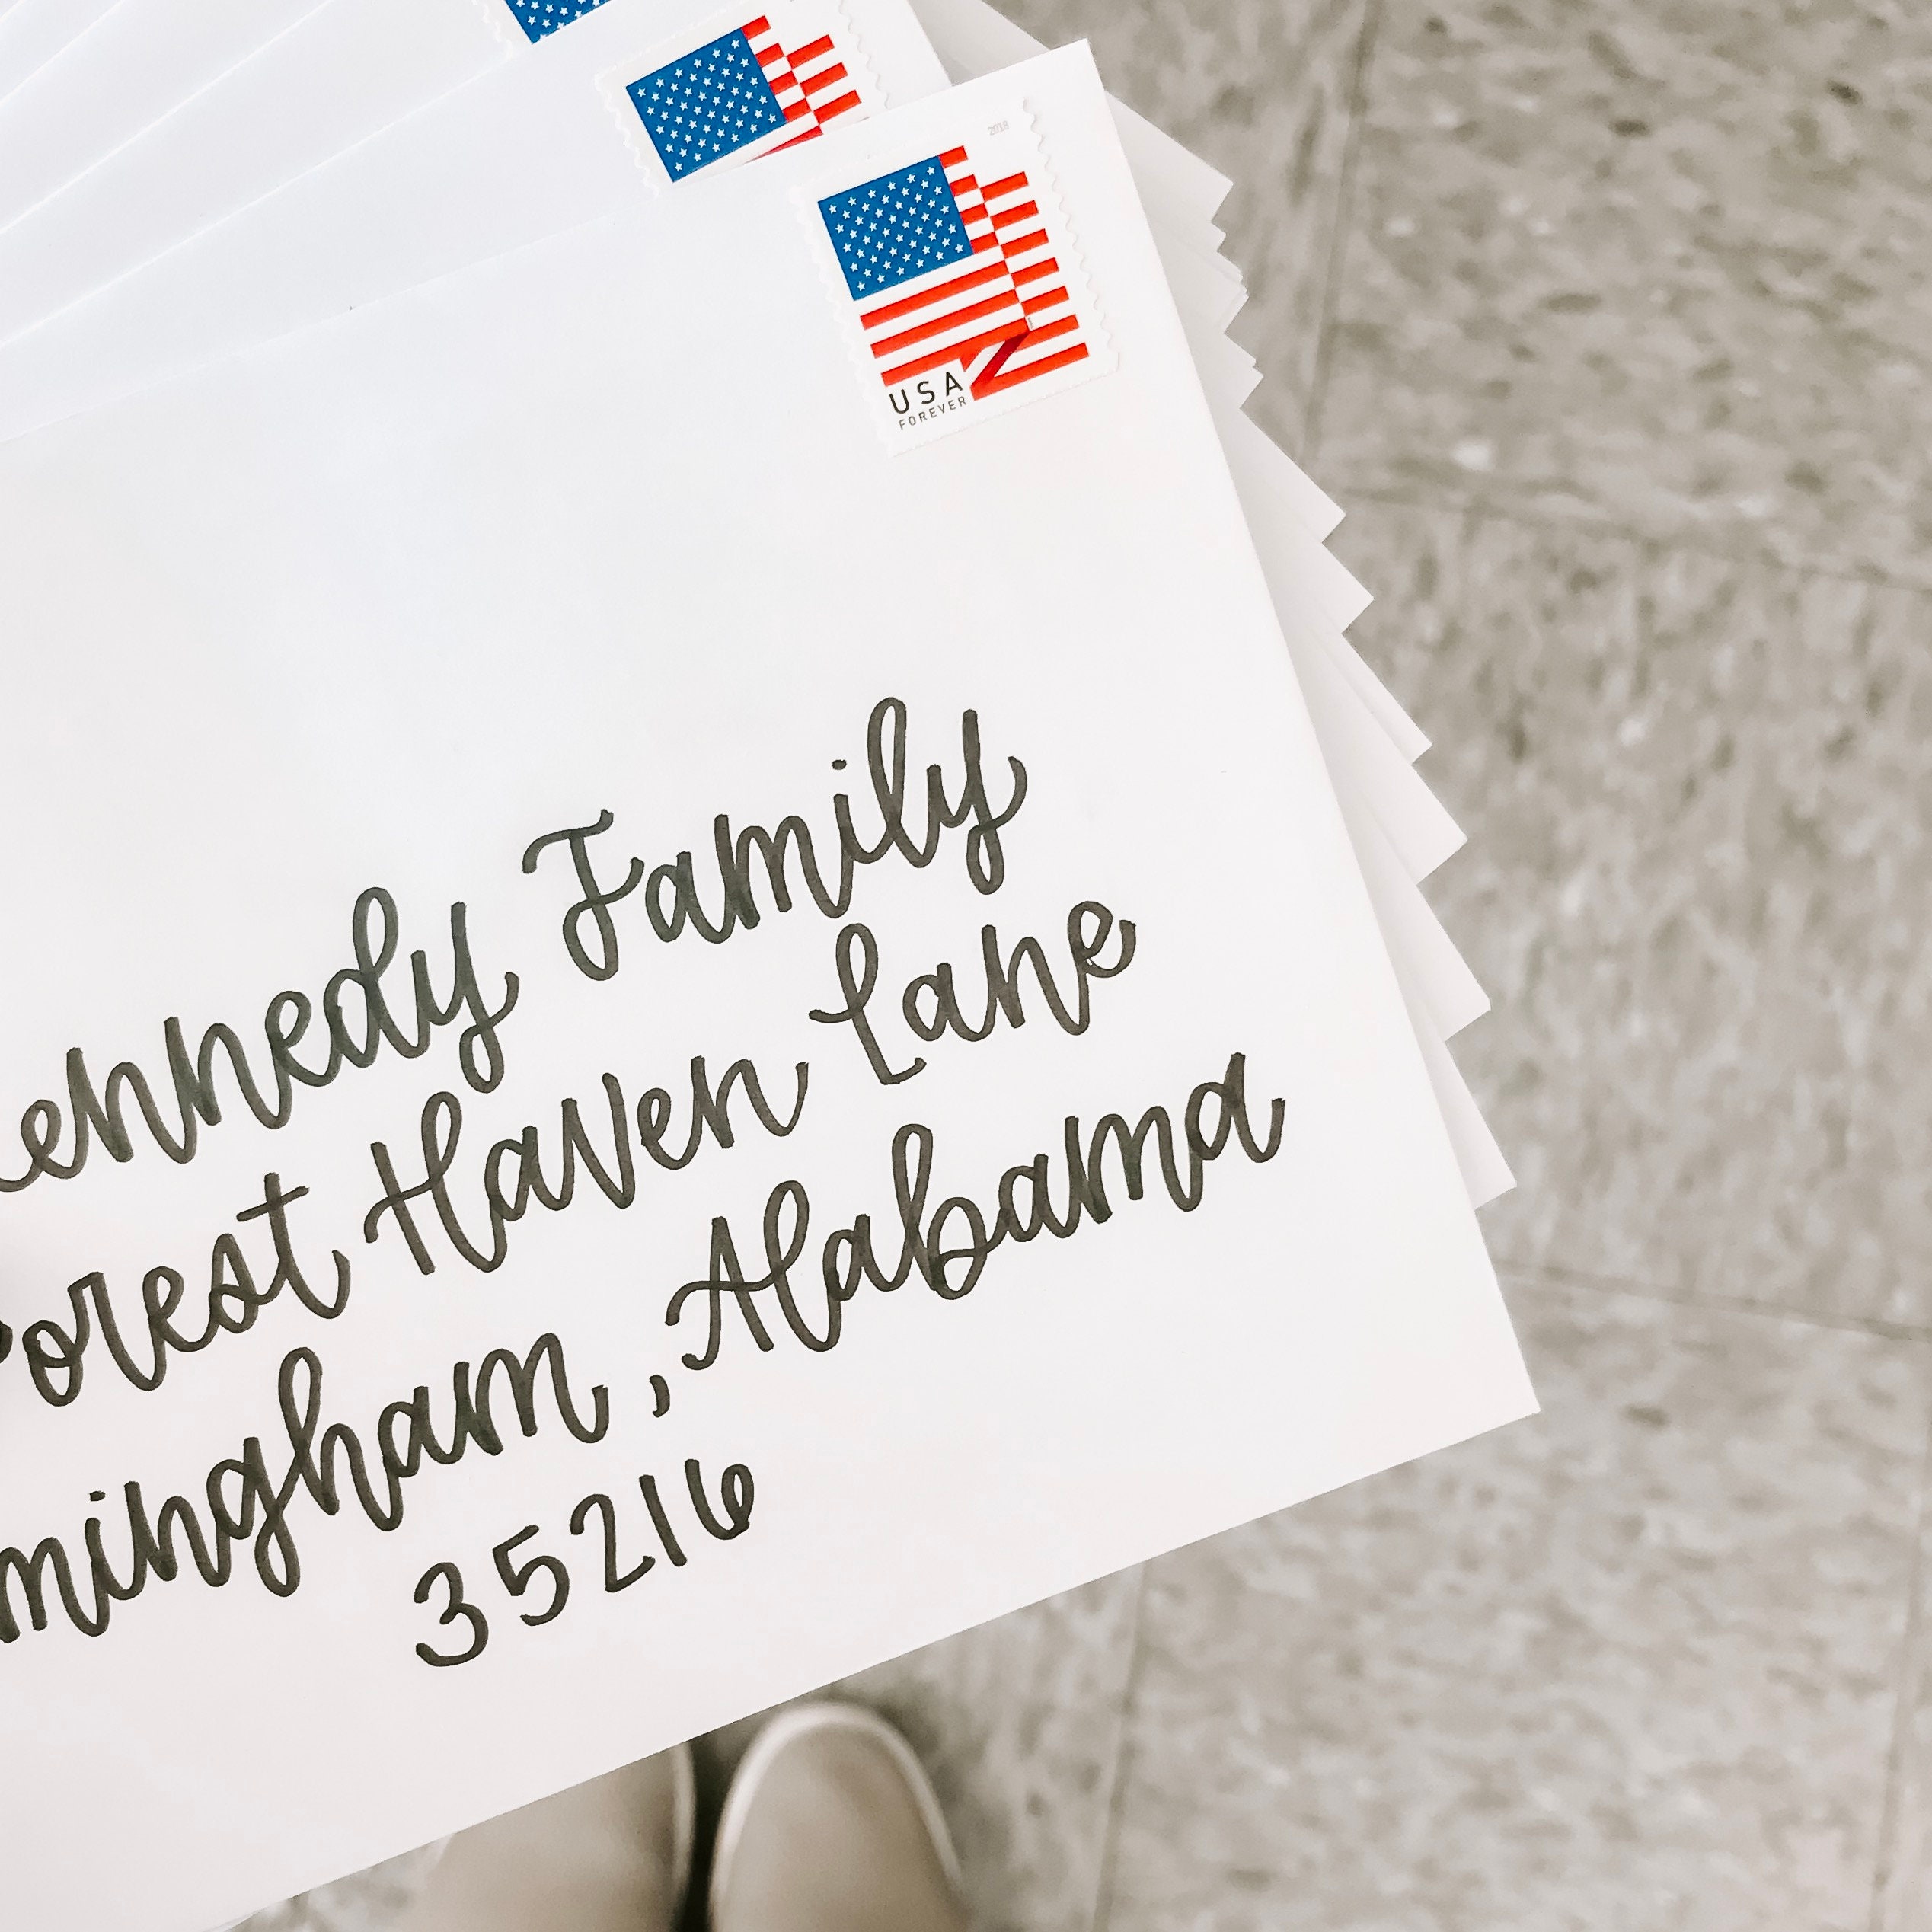 2018
USA
FOREVER
ennedy Family
orest Haven Lane
mingham, Alabama
35216